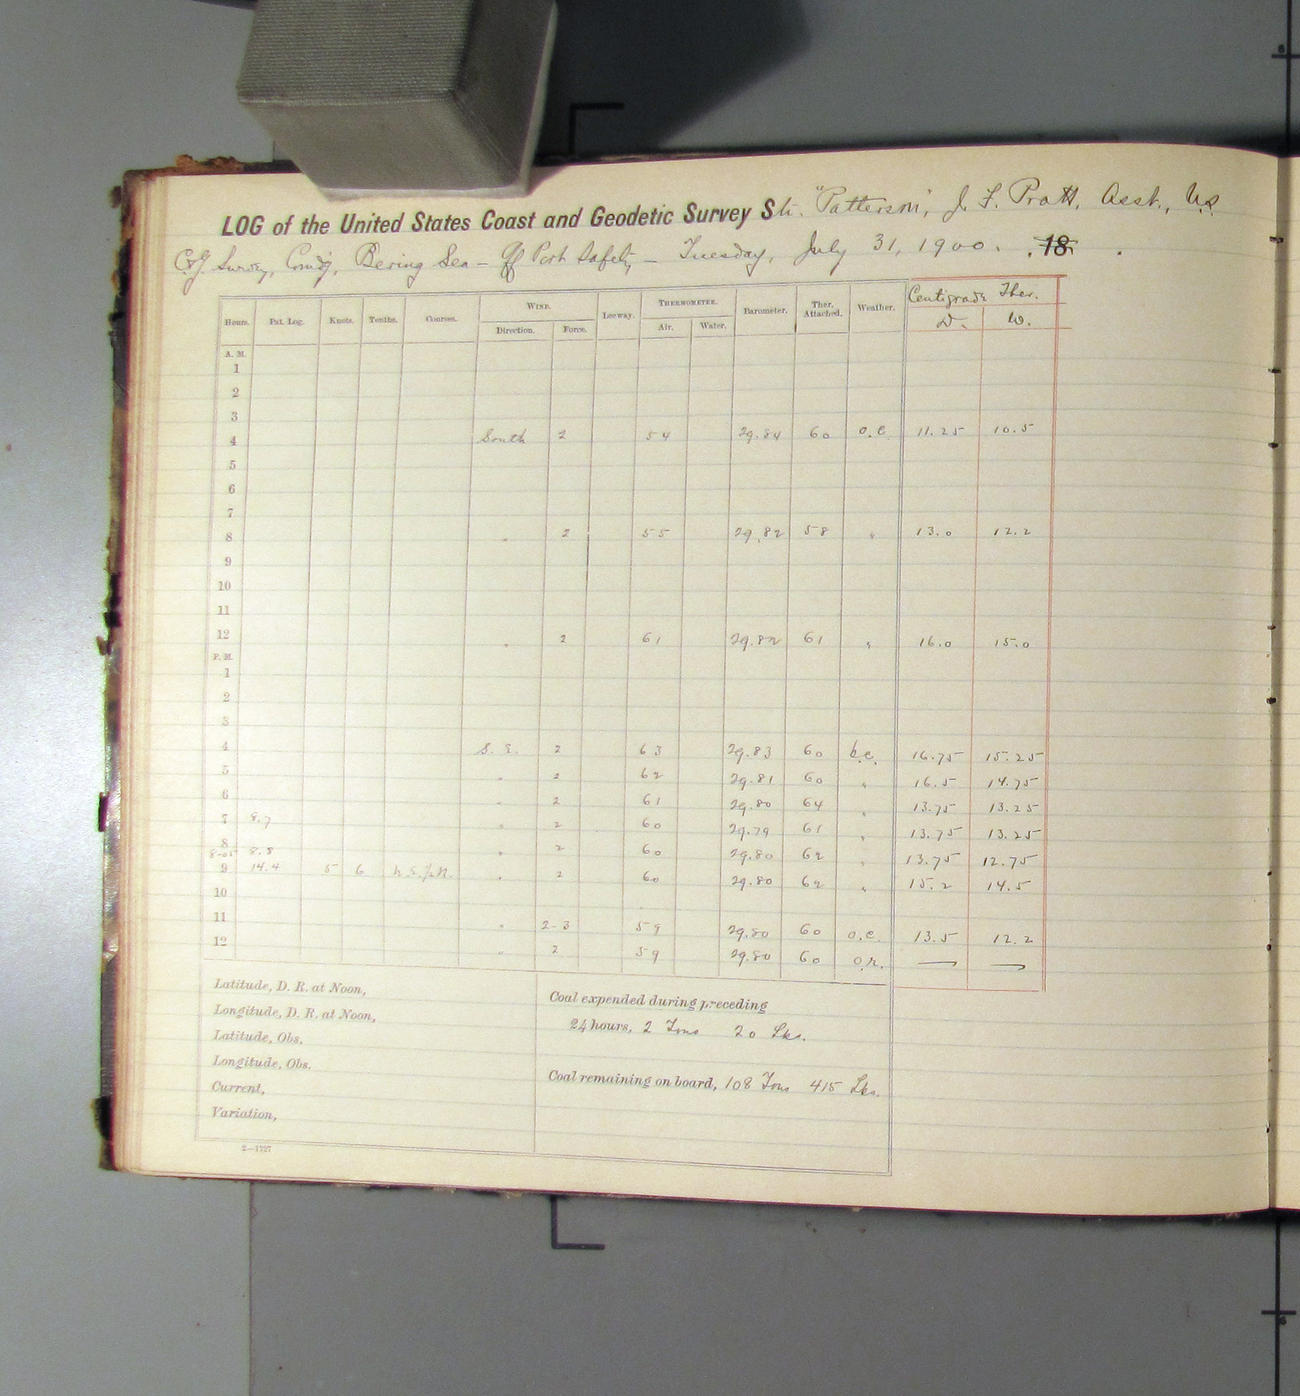 LOG of the United States Coast and Geodetic Survey Str. "Patterson", J. F. Pratt, Asst., U.S.
C&G Survey, Comd'g, Bering Sea - Off Port Safety - Tuesday, July 31, 1900. , 18 .
Hours. Pat. Log. Knots. Tenths. Courses. WIND. Leeway. THERMOMETER. Barometer. Ther. Attached. Weather. Centigrade Ther.
Direction. Force. Air. Water. D. W.
A. M.
1
2
3
4 South 2 54 29.84 60 o.c. 11.25 10.5
5
6
7
8 " 2 55 29.82 58 " 13.0 12.2
9
10
11
12 " 2 61 29.82 61 " 16.0 15.0
P. M.
1
2
3
4 S. E. 2 63 29.83 60 b.c. 16.75 15.25
5 " 2 62 29.81 60 " 16.5 14.75
6 " 2 61 29.80 64 " 13.75 13.25
7 8.7 " 2 60 29.79 61 " 13.75 13.25
8 8.8 " 2 60 29.80 62 " 13.75 12.75
9 14.4 5 6 " 2 60 29.80 62 " 15.2 14.5
10
11 " 2-3 59 29.80 60 o.c. 13.5 12.2
12 " 2 59 29.80 60 o.r. — —
Latitude, D. R. at Noon,
Longitude, D. R. at Noon,
Latitude, Obs.
Longitude, Obs.
Current,
Variation,
Coal expended during preceding
24 hours, 2 Tons 20 Lbs.
Coal remaining on board, 108 Tons 415 Lbs.
2—1727